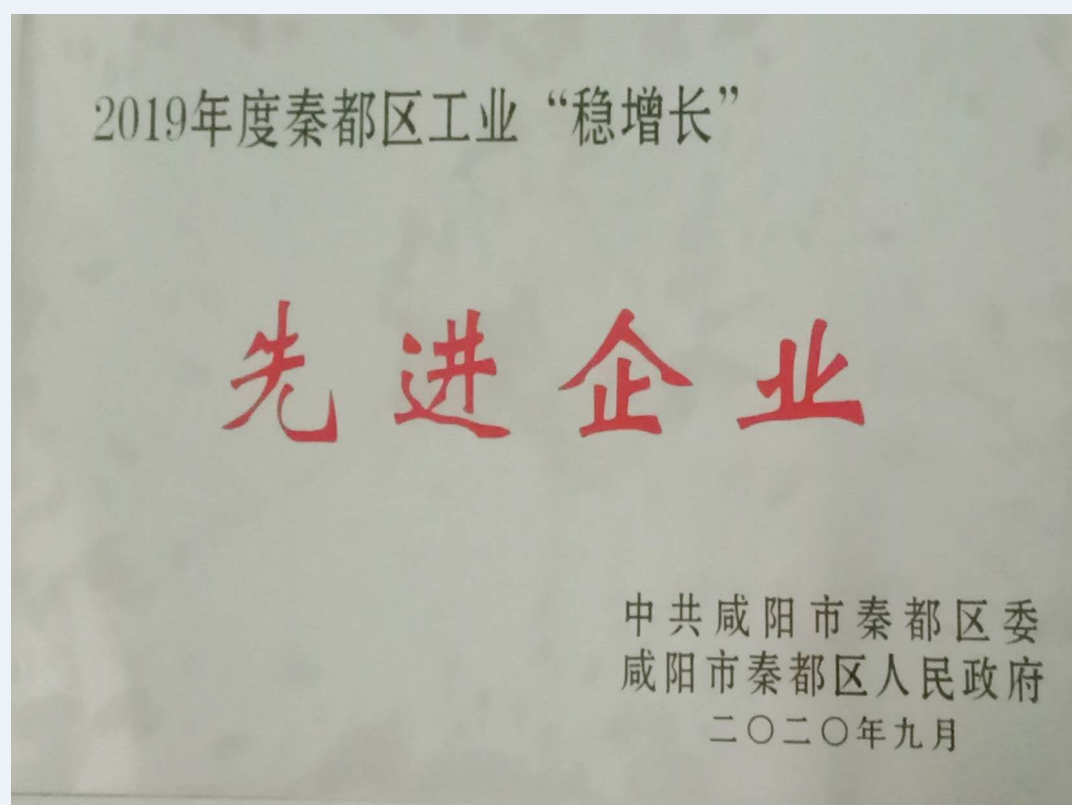 2019年度秦都区工业“稳增长”
先进企业
中共咸阳市秦都区委
咸阳市秦都区人民政府
二〇二〇年九月